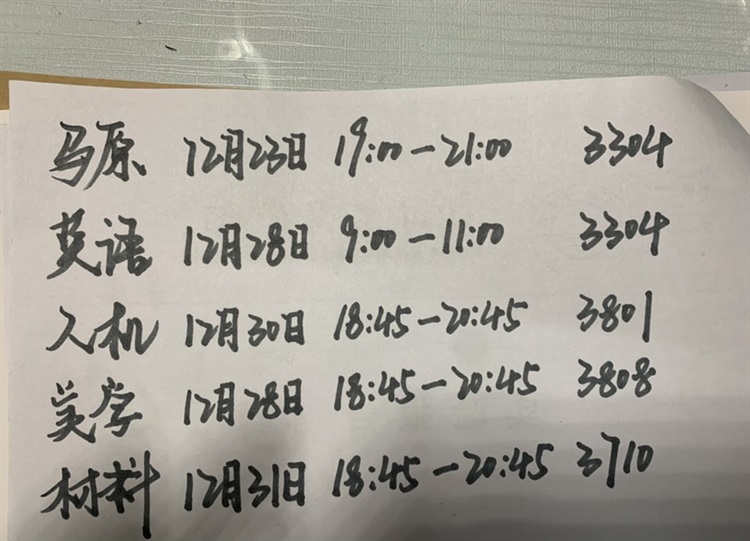 马原 12月23日 19:00-21:00 3304
英语 12月28日 9:00-11:00 3304
人机 12月30日 18:45-20:45 3801
美学 12月28日 18:45-20:45 3808
材料 12月31日 18:45-20:45 3710